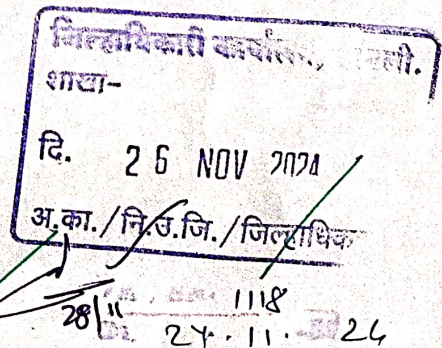 जिल्हाधिकारी कार्यालय,
शाखा-
दि. 26 NOV 2024
अ.का./नि.उ.जि./जिल्हाधिक
28/11
1118